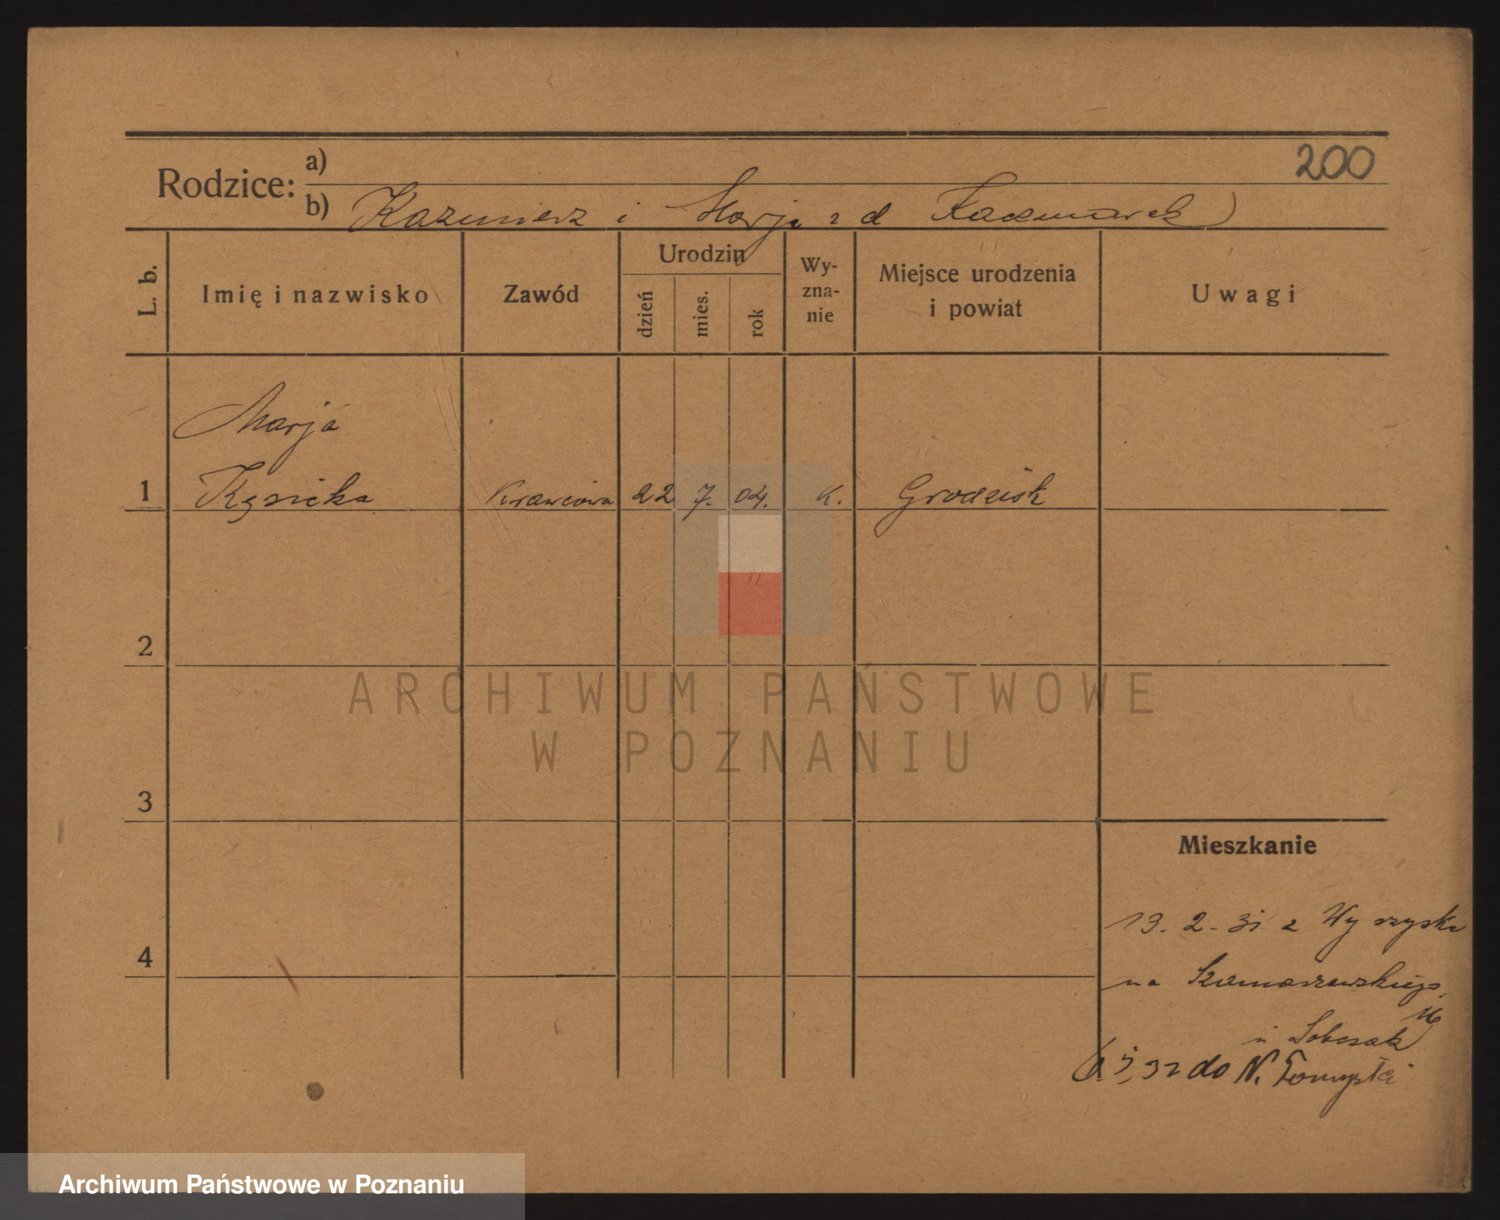 200
Rodzice:
a)
b) Kazimierz i Marja z d Kaczmarek
L. b.
Imię i nazwisko
Zawód
Urodzin
dzień
mies.
rok
Wy-
zna-
nie
Miejsce urodzenia
i powiat
Uwagi
Marja
1 Kęsicka Krawcowa 22 7. 04. K. Grodzisk
2
3
4
Mieszkanie
13. 2. 31 z Wyrzyska
na Szamarzewskiego
16
u Sobczak
32 do N. Tomyśla
ARCHIWUM PAŃSTWOWE
W POZNANIU
Archiwum Państwowe w Poznaniu